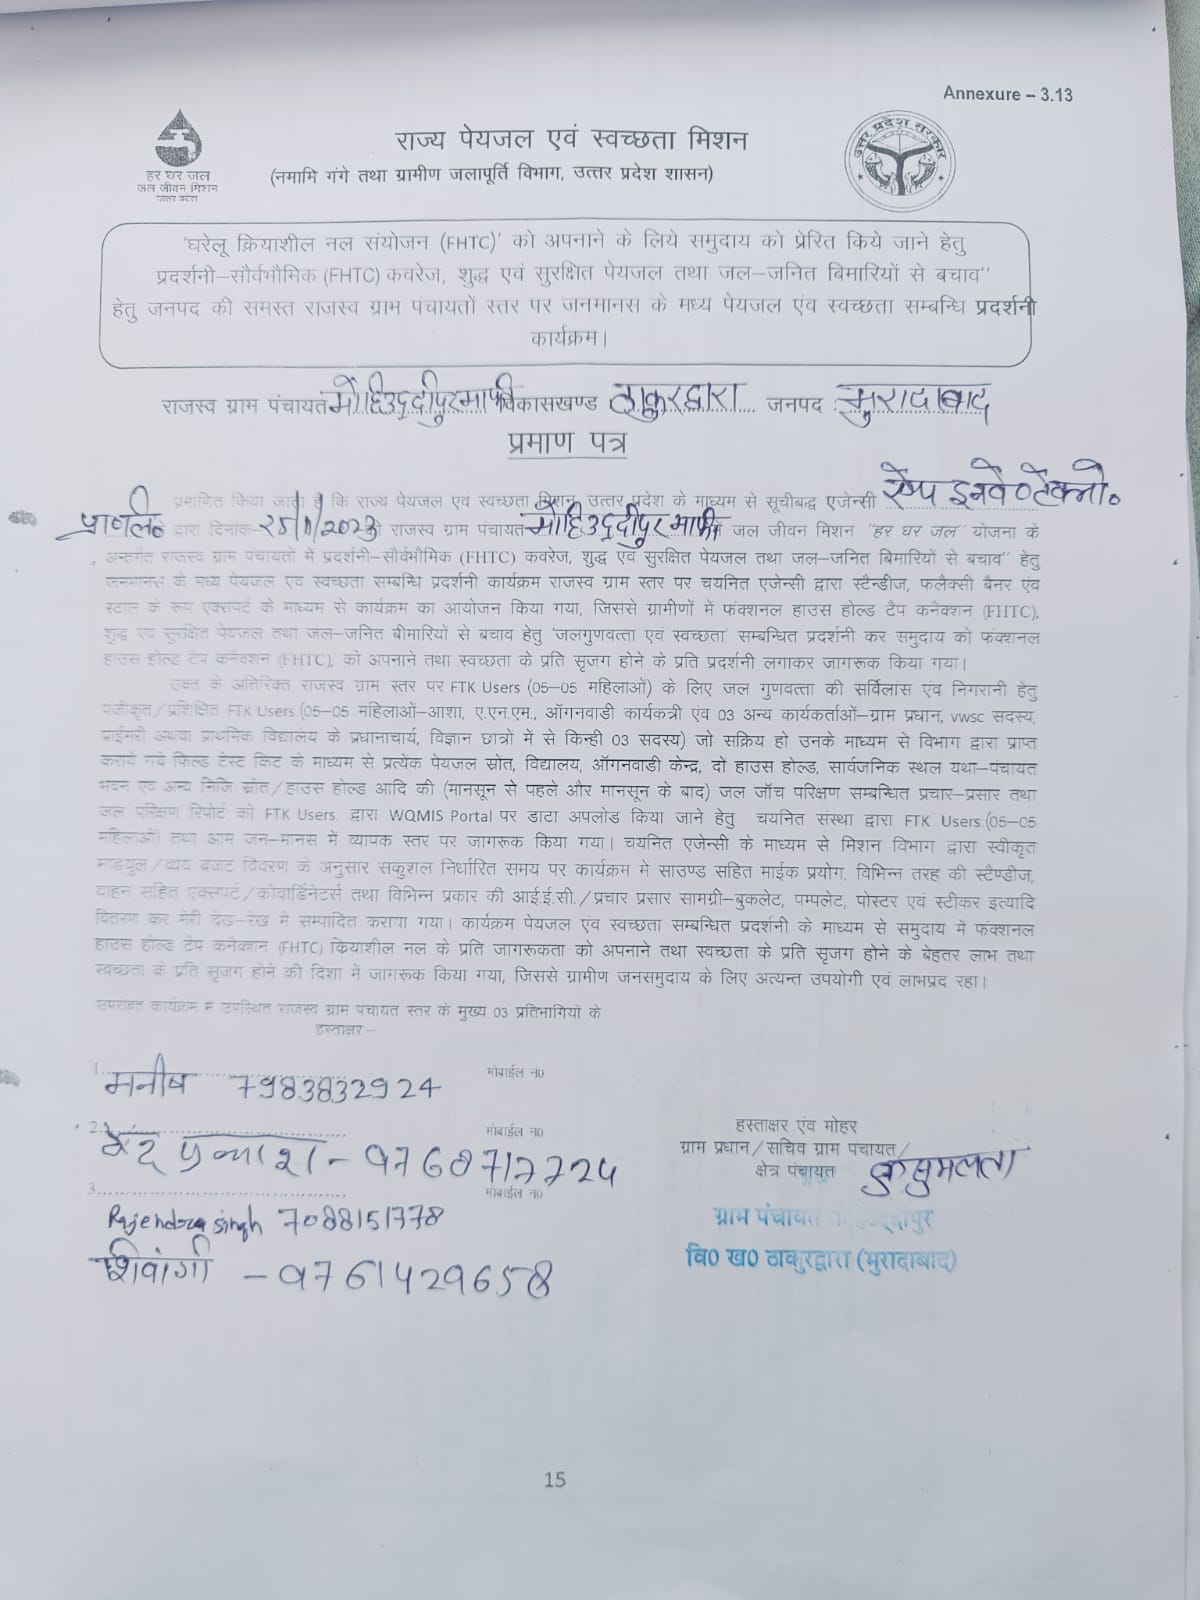 Annexure – 3.13
हर घर जल
जल जीवन मिशन
उत्तर प्रदेश
राज्य पेयजल एवं स्वच्छता मिशन
(नमामि गंगे तथा ग्रामीण जलापूर्ति विभाग, उत्तर प्रदेश शासन)
उत्तर प्रदेश सरकार
'घरेलू क्रियाशील नल संयोजन (FHTC)' को अपनाने के लिये समुदाय को प्रेरित किये जाने हेतु
प्रदर्शनी–सौर्वभौमिक (FHTC) कवरेज, शुद्ध एवं सुरक्षित पेयजल तथा जल–जनित बिमारियों से बचाव''
हेतु जनपद की समस्त राजस्व ग्राम पंचायतों स्तर पर जनमानस के मध्य पेयजल एंव स्वच्छता सम्बन्धि प्रदर्शनी
कार्यक्रम।
राजस्व ग्राम पंचायत मोहिउद्दीपुर माफी विकासखण्ड ठाकुरद्वारा जनपद मुरादाबाद
प्रमाण पत्र
प्रमाणित किया जाता है कि राज्य पेयजल एवं स्वच्छता मिशन, उत्तर प्रदेश के माध्यम से सूचीबद्ध एजेन्सी इनवे० टेक्नो०
प्रा०लि० द्वारा दिनांक 25/1/2023 को राजस्व ग्राम पंचायत मोहिउद्दीपुर माफी में जल जीवन मिशन ''हर घर जल'' योजना के
अन्तर्गत राजस्व ग्राम पंचायतो में प्रदर्शनी–सौर्वभौमिक (FHTC) कवरेज, शुद्ध एवं सुरक्षित पेयजल तथा जल–जनित बिमारियों से बचाव'' हेतु
जनमानस के मध्य पेयजल एंव स्वच्छता सम्बन्धि प्रदर्शनी कार्यक्रम राजस्व ग्राम स्तर पर चयनित एजेन्सी द्वारा स्टैन्डीज, फलैक्सी बैनर एंव
स्टाल के रूप एक्सपर्ट के माध्यम से कार्यक्रम का आयोजन किया गया, जिससे ग्रामीणों में फंक्शनल हाउस होल्ड टैप कनैक्शन (FHTC),
शुद्ध एवं सुरक्षित पेयजल तथा जल–जनित बीमारियों से बचाव हेतु 'जलगुणवत्ता एवं स्वच्छता' सम्बन्धित प्रदर्शनी कर समुदाय को फंक्शनल
हाउस होल्ड टैप कनैक्शन (FHTC), को अपनाने तथा स्वच्छता के प्रति सृजग होने के प्रति प्रदर्शनी लगाकर जागरूक किया गया।
उक्त के अतिरिक्त राजस्व ग्राम स्तर पर FTK Users (05–05 महिलाओं) के लिए जल गुणवत्ता की सर्विलांस एंव निगरानी हेतु
पंजीकृत/प्रशिक्षित FTK Users.(05–05 महिलाओं–आशा, ए.एन.एम., ऑगनवाडी कार्यकत्री एंव 03 अन्य कार्यकर्ताओं–ग्राम प्रधान, vwsc सदस्य,
प्राईमरी अथवा प्राथमिक विद्यालय के प्रधानाचार्य, विज्ञान छात्रों में से किन्ही 03 सदस्य) जो सक्रिय हो उनके माध्यम से विभाग द्वारा प्राप्त
कराये गये फिल्ड टैस्टे किट के माध्यम से प्रत्येक पेयजल स्रोंत, विद्यालय, ऑगनवाडी केन्द्र, दो हाउस होल्ड, सार्वजनिक स्थल यथा–पंचायत
भवन एंव अन्य निजि स्रोत/हाउस होल्ड आदि की (मानसून से पहले और मानसून के बाद) जल जाँच परिक्षण सम्बन्धित प्रचार–प्रसार तथा
जल परिक्षण रिपोर्ट को FTK Users. द्वारा WQMIS Portal पर डाटा अपलोड किया जाने हेतु चयनित संस्था द्वारा FTK Users.(05–05
महिलाओं) तथा आम जन–मानस में व्यापक स्तर पर जागरूक किया गया। चयनित एजेन्सी के माध्यम से मिशन विभाग द्वारा स्वीकृत
माड्यूल/व्यय बजट विवरण के अनुसार सकुशल निर्धारित समय पर कार्यक्रम में साउण्ड सहित माईक प्रयोग, विभिन्न तरह की स्टैण्डीज,
वाहन सहित एक्सपर्ट/कोवार्डिनेटर्स तथा विभिन्न प्रकार की आई.ई.सी./प्रचार प्रसार सामग्री–बुकलेट, पम्पलेट, पोस्टर एवं स्टीकर इत्यादि
वितरण कर मेरी देख–रेख में सम्पादित कराया गया। कार्यक्रम पेयजल एंव स्वच्छता सम्बन्धित प्रदर्शनी के माध्यम से समुदाय में फंक्शनल
हाउस होल्ड टैप कनैक्शन (FHTC) कियाशील नल के प्रति जागरूकता को अपनाने तथा स्वच्छता के प्रति सृजग होने के बेहतर लाभ तथा
स्वच्छता के प्रति सृजग होने की दिशा में जागरूक किया गया, जिससे ग्रामीण जनसमुदाय के लिए अत्यन्त उपयोगी एवं लाभप्रद रहा।
उपरोक्त कार्यक्रम में उपस्थित राजस्व ग्राम पंचायत स्तर के मुख्य 03 प्रतिभागियों के
हस्ताक्षर:–
1. मनीष 7983832924 मोबाईल न0
2. वेद प्रकाश – 9760717724 मोबाईल न0
3. मोबाईल न0
Rajendra singh 7088151778
शिवांगी – 9761429658
हस्ताक्षर एंव मोहर
ग्राम प्रधान/सचिव ग्राम पंचायत/
क्षेत्र पंचायत कुसुमलता
ग्राम पंचायत
वि0 ख0 ठाकुरद्वारा (मुरादाबाद)
15